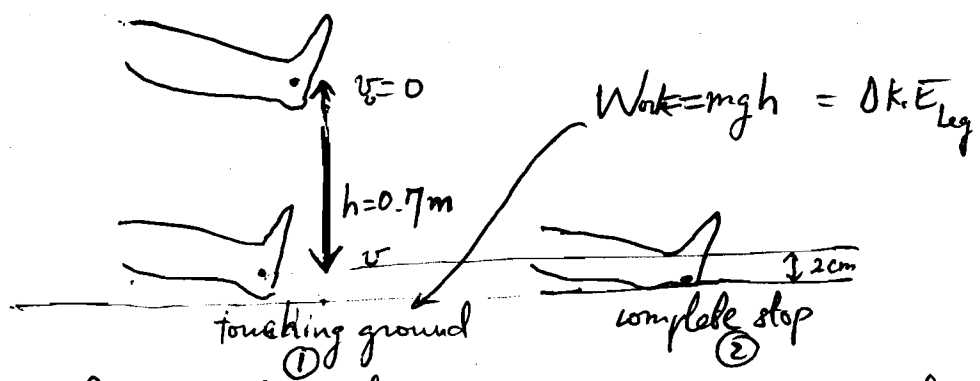 v₀=0
Work=mgh = ΔK.E_Leg
h=0.7m
v
2cm
touching ground
①
complete stop
②